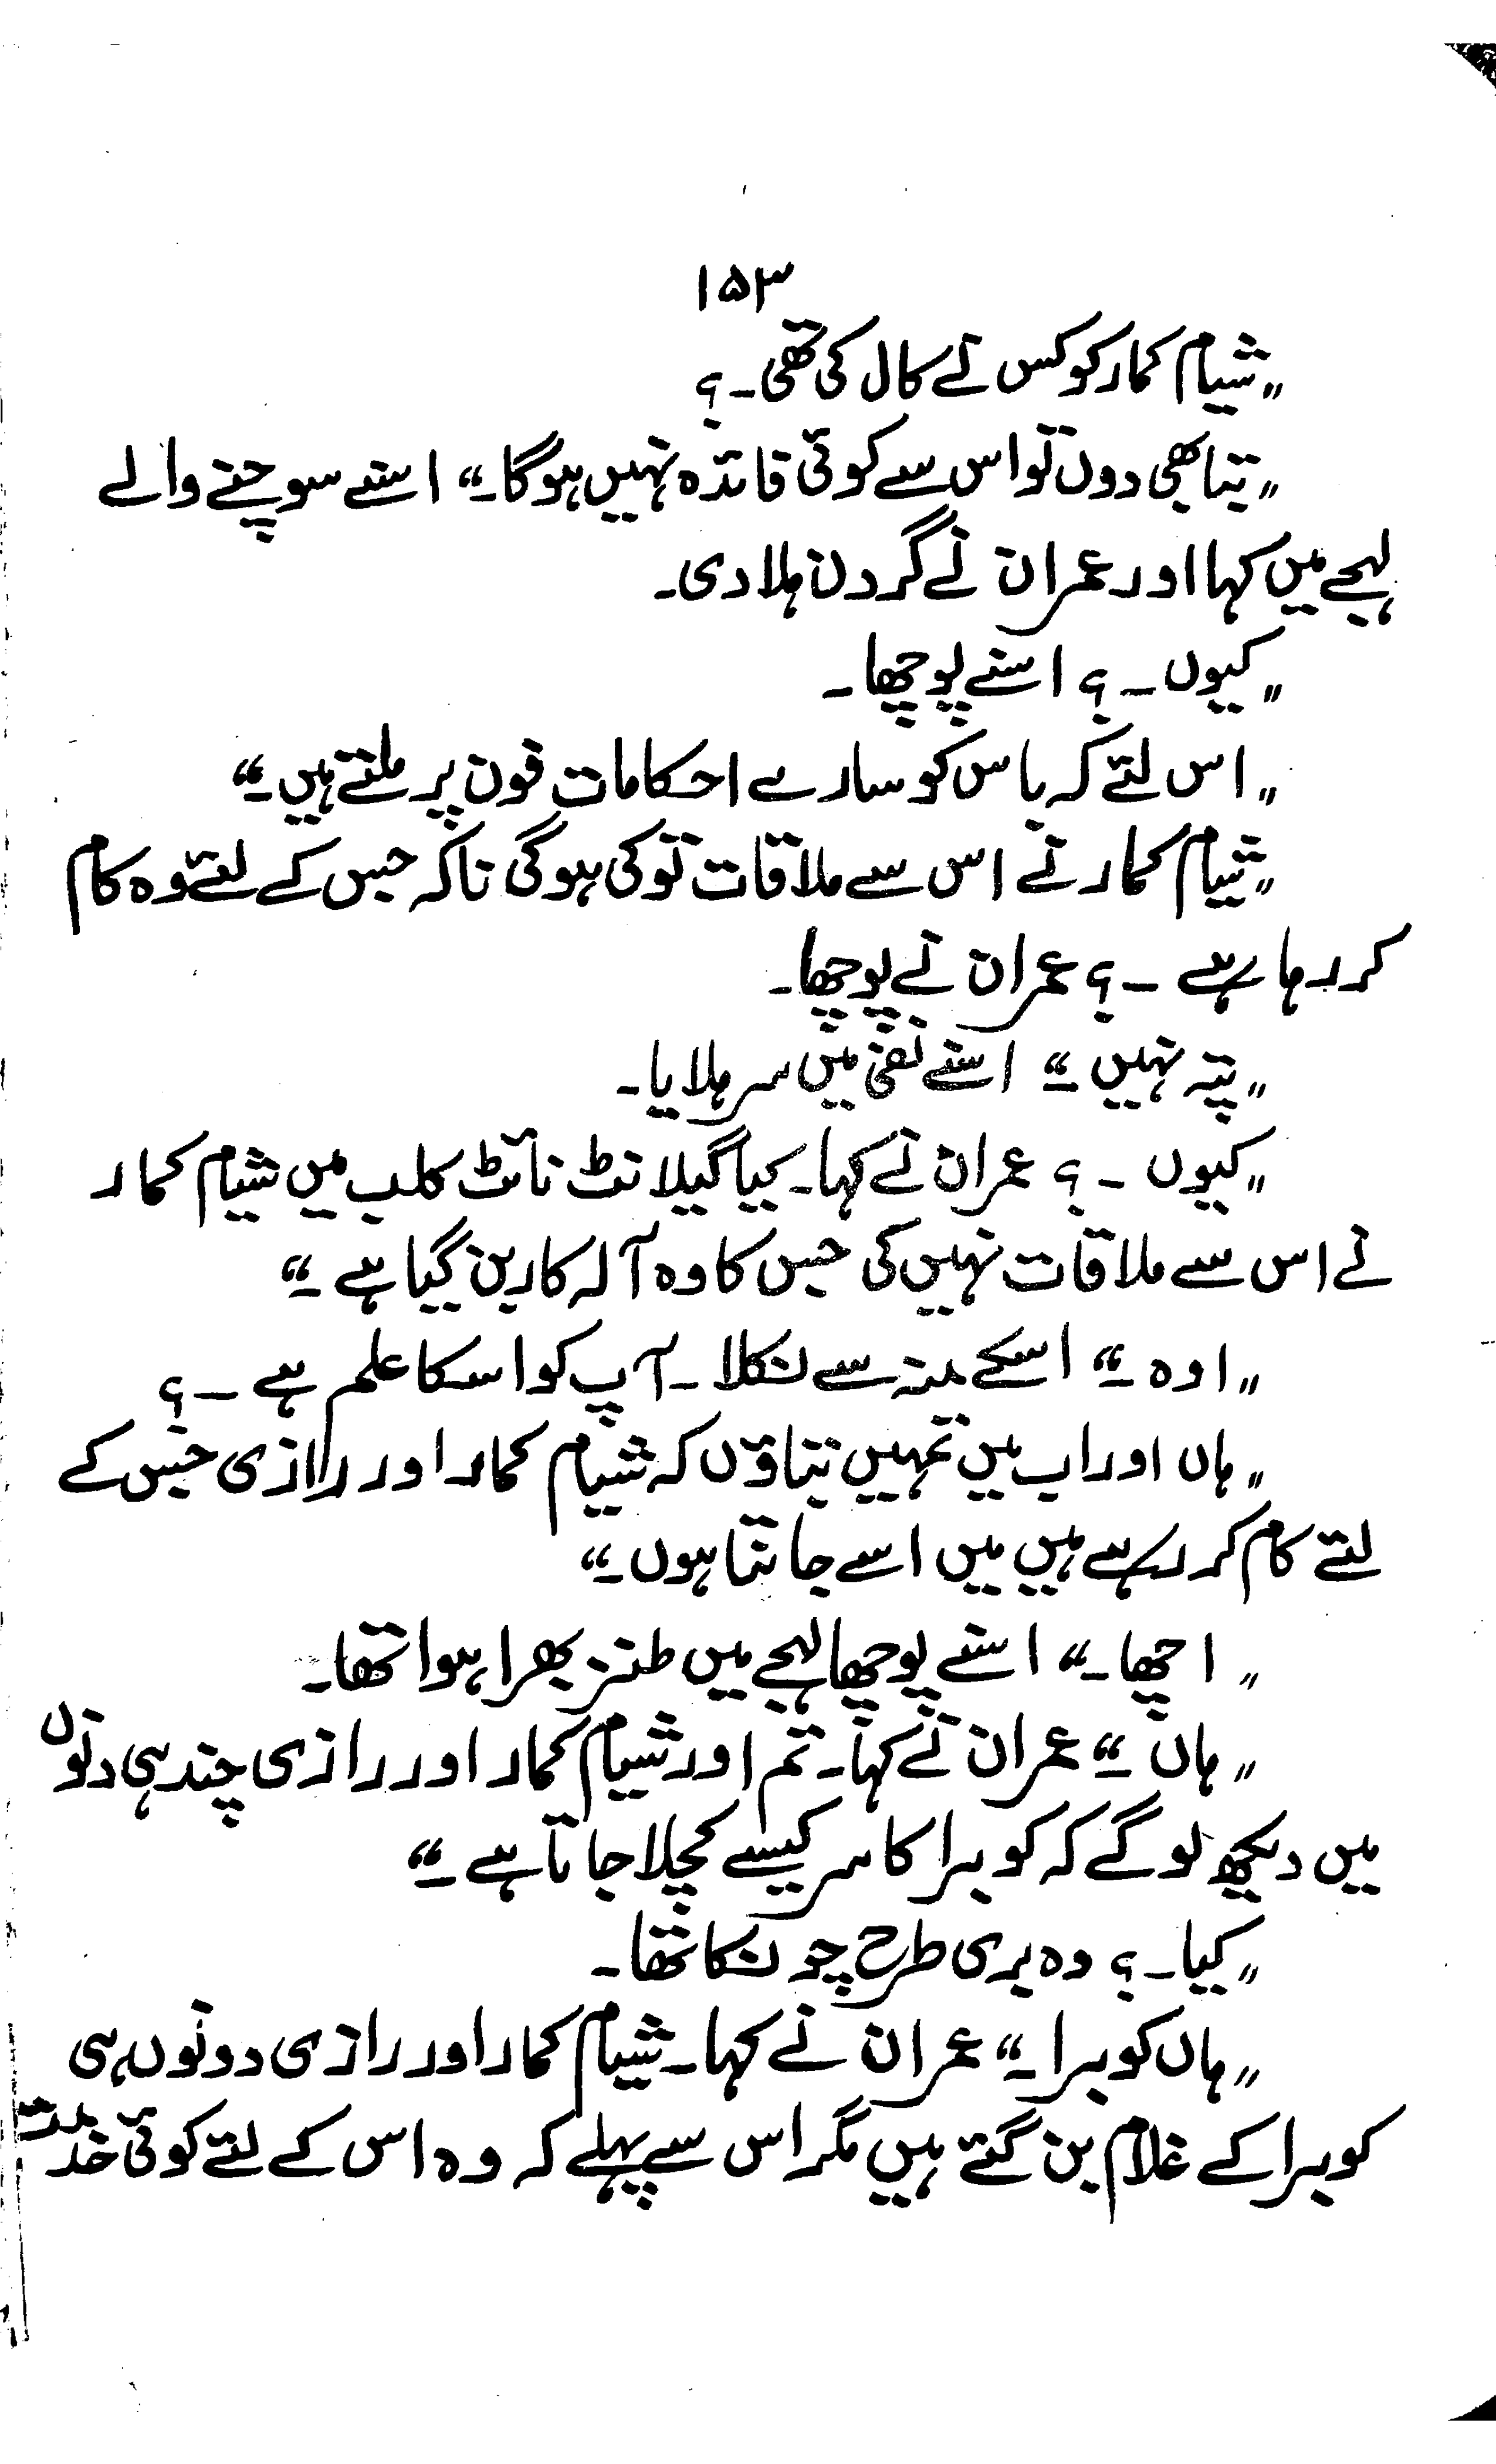 ۱۵۳
"شیام کمار کو کس نے کال کی تھی۔؟
"بتا بھی دوں تو اس سے کوئی فائدہ نہیں ہوگا۔" اسنے سوچنے والے
لہجے میں کہا اور عمران نے گردن ہلا دی۔
"کیوں۔؟ اسنے پوچھا۔
"اس لئے کہ باس کو سارے احکامات فون پر ملتے ہیں۔"
"شیام کمار نے اس سے ملاقات تو کی ہوگی تاکہ جس کے لئے وہ کام
کر رہا ہے۔؟ عمران نے پوچھا۔
"پتہ نہیں۔" اسنے نفی میں سر ہلایا۔
"کیوں۔؟ عمران نے کہا۔ کیا گیلانٹ نائٹ کلب میں شیام کمار
نے اس سے ملاقات نہیں کی جس کا وہ آلہ کار بن گیا ہے۔"
"اوہ۔" اسکے منہ سے نکلا۔ آپ کو اسکا علم ہے۔؟
"ہاں اور اب میں تمہیں بتاؤں کہ شیام کمار اور رازی جس کے
لئے کام کر رہے ہیں میں اسے جانتا ہوں۔"
"اچھا۔" اسنے پوچھا لہجے میں طنز بھرا ہوا تھا۔
"ہاں۔" عمران نے کہا۔ تم اور شیام کمار اور رازی چند ہی دنوں
میں دیکھ لو گے کہ کوبرا کا سر کیسے کچلا جاتا ہے۔"
"کیا۔؟ وہ بری طرح چونکا تھا۔
"ہاں کوبرا۔" عمران نے کہا۔ شیام کمار اور رازی دونوں ہی
کوبرا کے غلام بن گئے ہیں مگر اس سے پہلے کہ وہ اس کے لئے کوئی خدمت